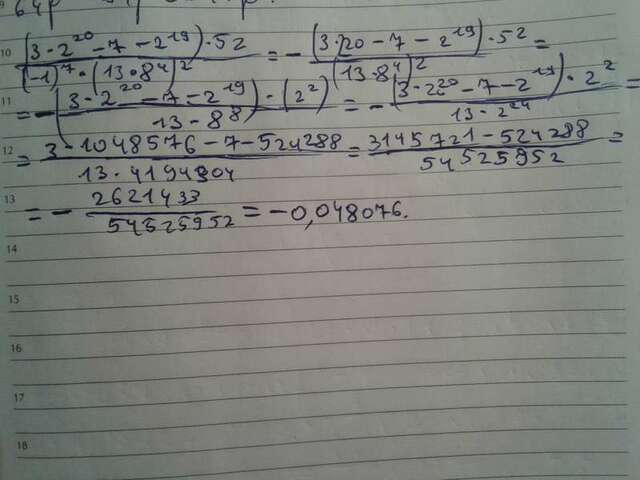 10 (3·2²⁰-7-2¹⁹)·52 / (-1)⁷·(13·8⁴)² = - (3·20-7-2¹⁹)·52 / (13·8⁴)² =
11 = - (3·2²⁰-7-2¹⁹)·(2²) / 13-8⁸ = - (3·2²⁰-7-2¹⁹)·2² / 13-2²⁴ =
12 = 3·1048576-7-524288 / 13·4194304 = 3145721-524288 / 54525952 =
13 = - 2621433 / 54525952 = -0,048076.
14
15
16
17
18